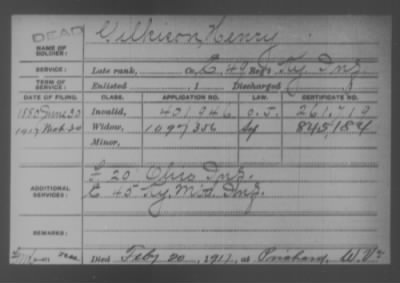 DEAD
NAME OF SOLDIER: Wilkison, Henry
SERVICE: Late rank, Co. E, 49 Reg't Ky. Inf.
TERM OF SERVICE: Enlisted , 1 Discharged , 1
DATE OF FILING. CLASS. APPLICATION NO. LAW. CERTIFICATE NO.
1880 June 30 Invalid, 401,946 G.L. 261.719
1917 Mch 30 Widow, 1097356 845184
Minor,
ADDITIONAL SERVICES: F 20 Ohio Inf.
E 45 Ky. Mtd. Inf.
REMARKS:
Died Feby 20, 1917, at Prichard, W. Va